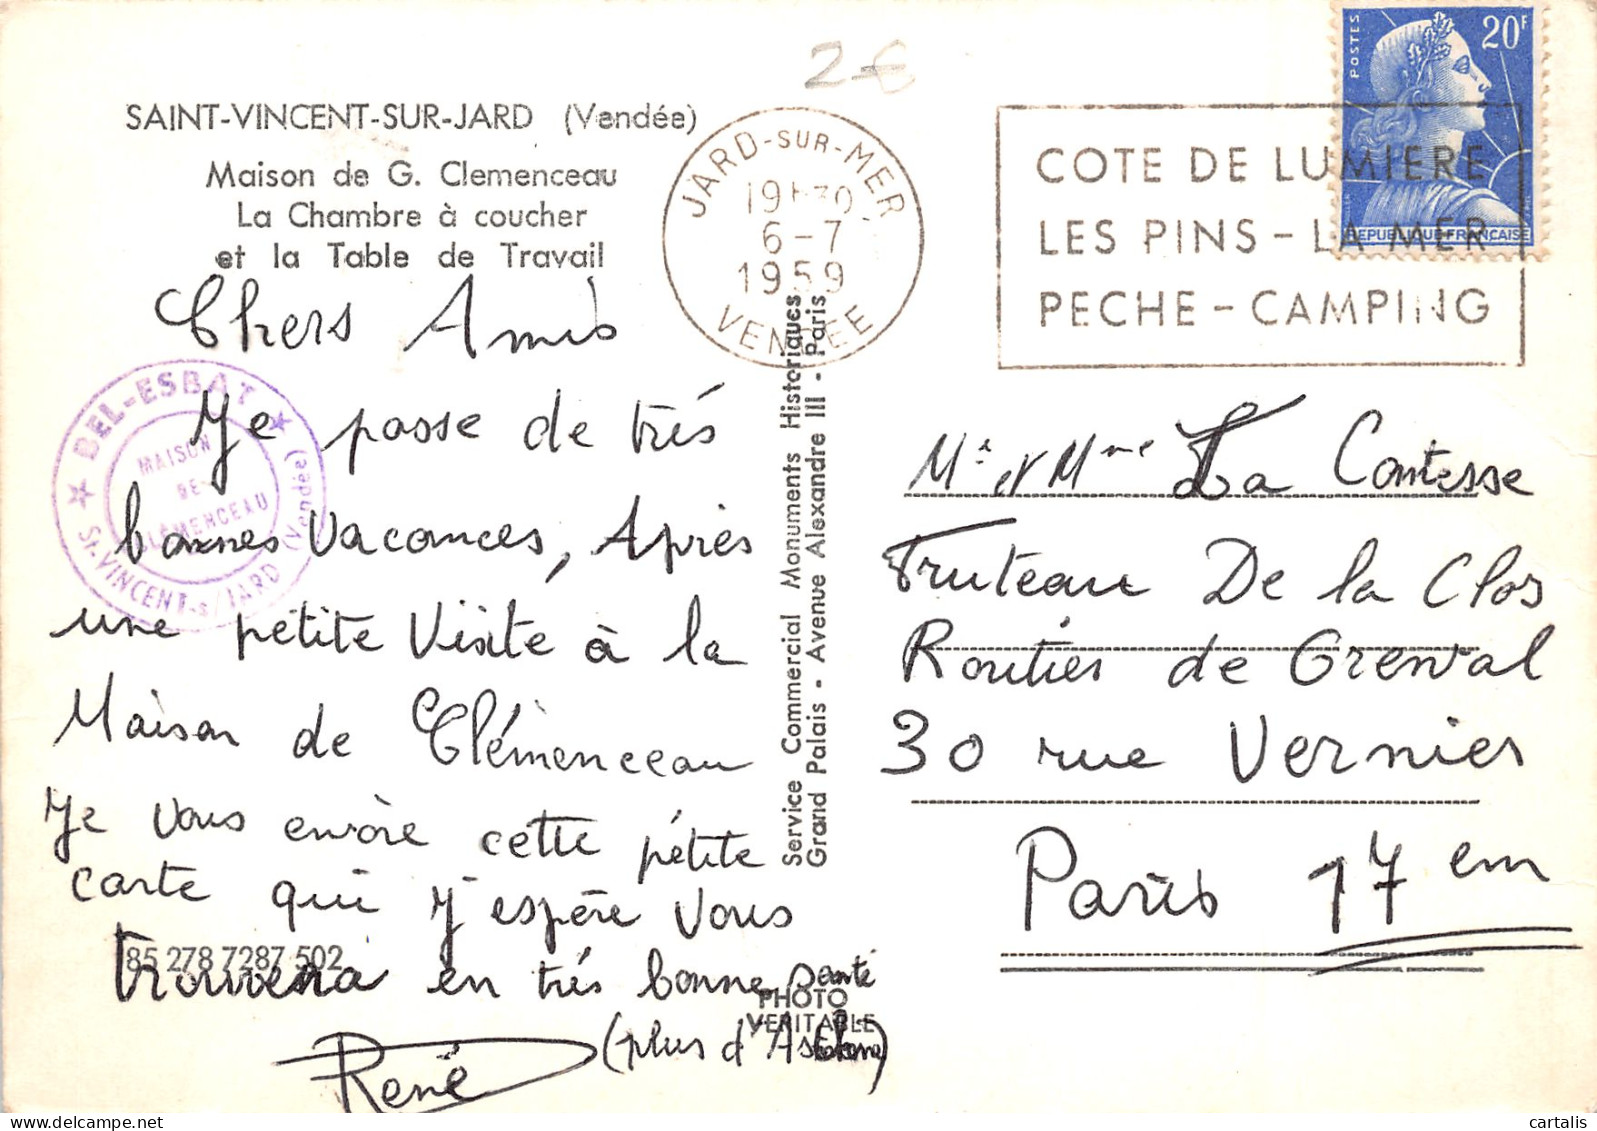 2 €
SAINT-VINCENT-SUR-JARD (Vendée)
Maison de G. Clemenceau
La Chambre à coucher
et la Table de Travail
JARD-SUR-MER
19h30
6-7
1959
VENDEE
COTE DE LUMIERE
LES PINS - LA MER
PECHE - CAMPING
POSTES
20F
REPUBLIQUE FRANÇAISE
BEL-ESBAT
MAISON
DE
CLEMENCEAU
St-VINCENT-s/JARD
(Vendée)
Chers Amis
Je passe de trés
bonnes Vacances, Après
une pétite Visite à la
Maison de Clémenceau
Je Vous envoie cette pétite
carte qui j'espère Vous
Trouvera en trés bonne santé
(plus d'Asthme)
René
85 278 7287 502
PHOTO
VERITABLE
Service Commercial Monuments Historiques
Grand Palais - Avenue Alexandre III - Paris
Mr et Mme La Comtesse
Truteau De la Clos
Routies de Grenval
30 rue Vernier
Paris 17em
cartalis